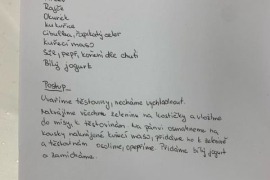 Rajče
Okurek
Kukuřice
Cibulka, řapíkatý celer
Kuřecí maso
Sůl, pepř, koření dle chuti
Bílý jogurt
Postup
Uvaříme těstoviny, necháme vychladnout.
Nakrájíme všechnu zeleninu na kostičky a vložíme
do mísy, k těstovinám na pánvi osmahneme na
kousky nakrájené kuřecí maso, přidáme ho k zelenině
a těstovinám osolíme, opepříme. Přidáme bílý jogurt
a zamícháme.